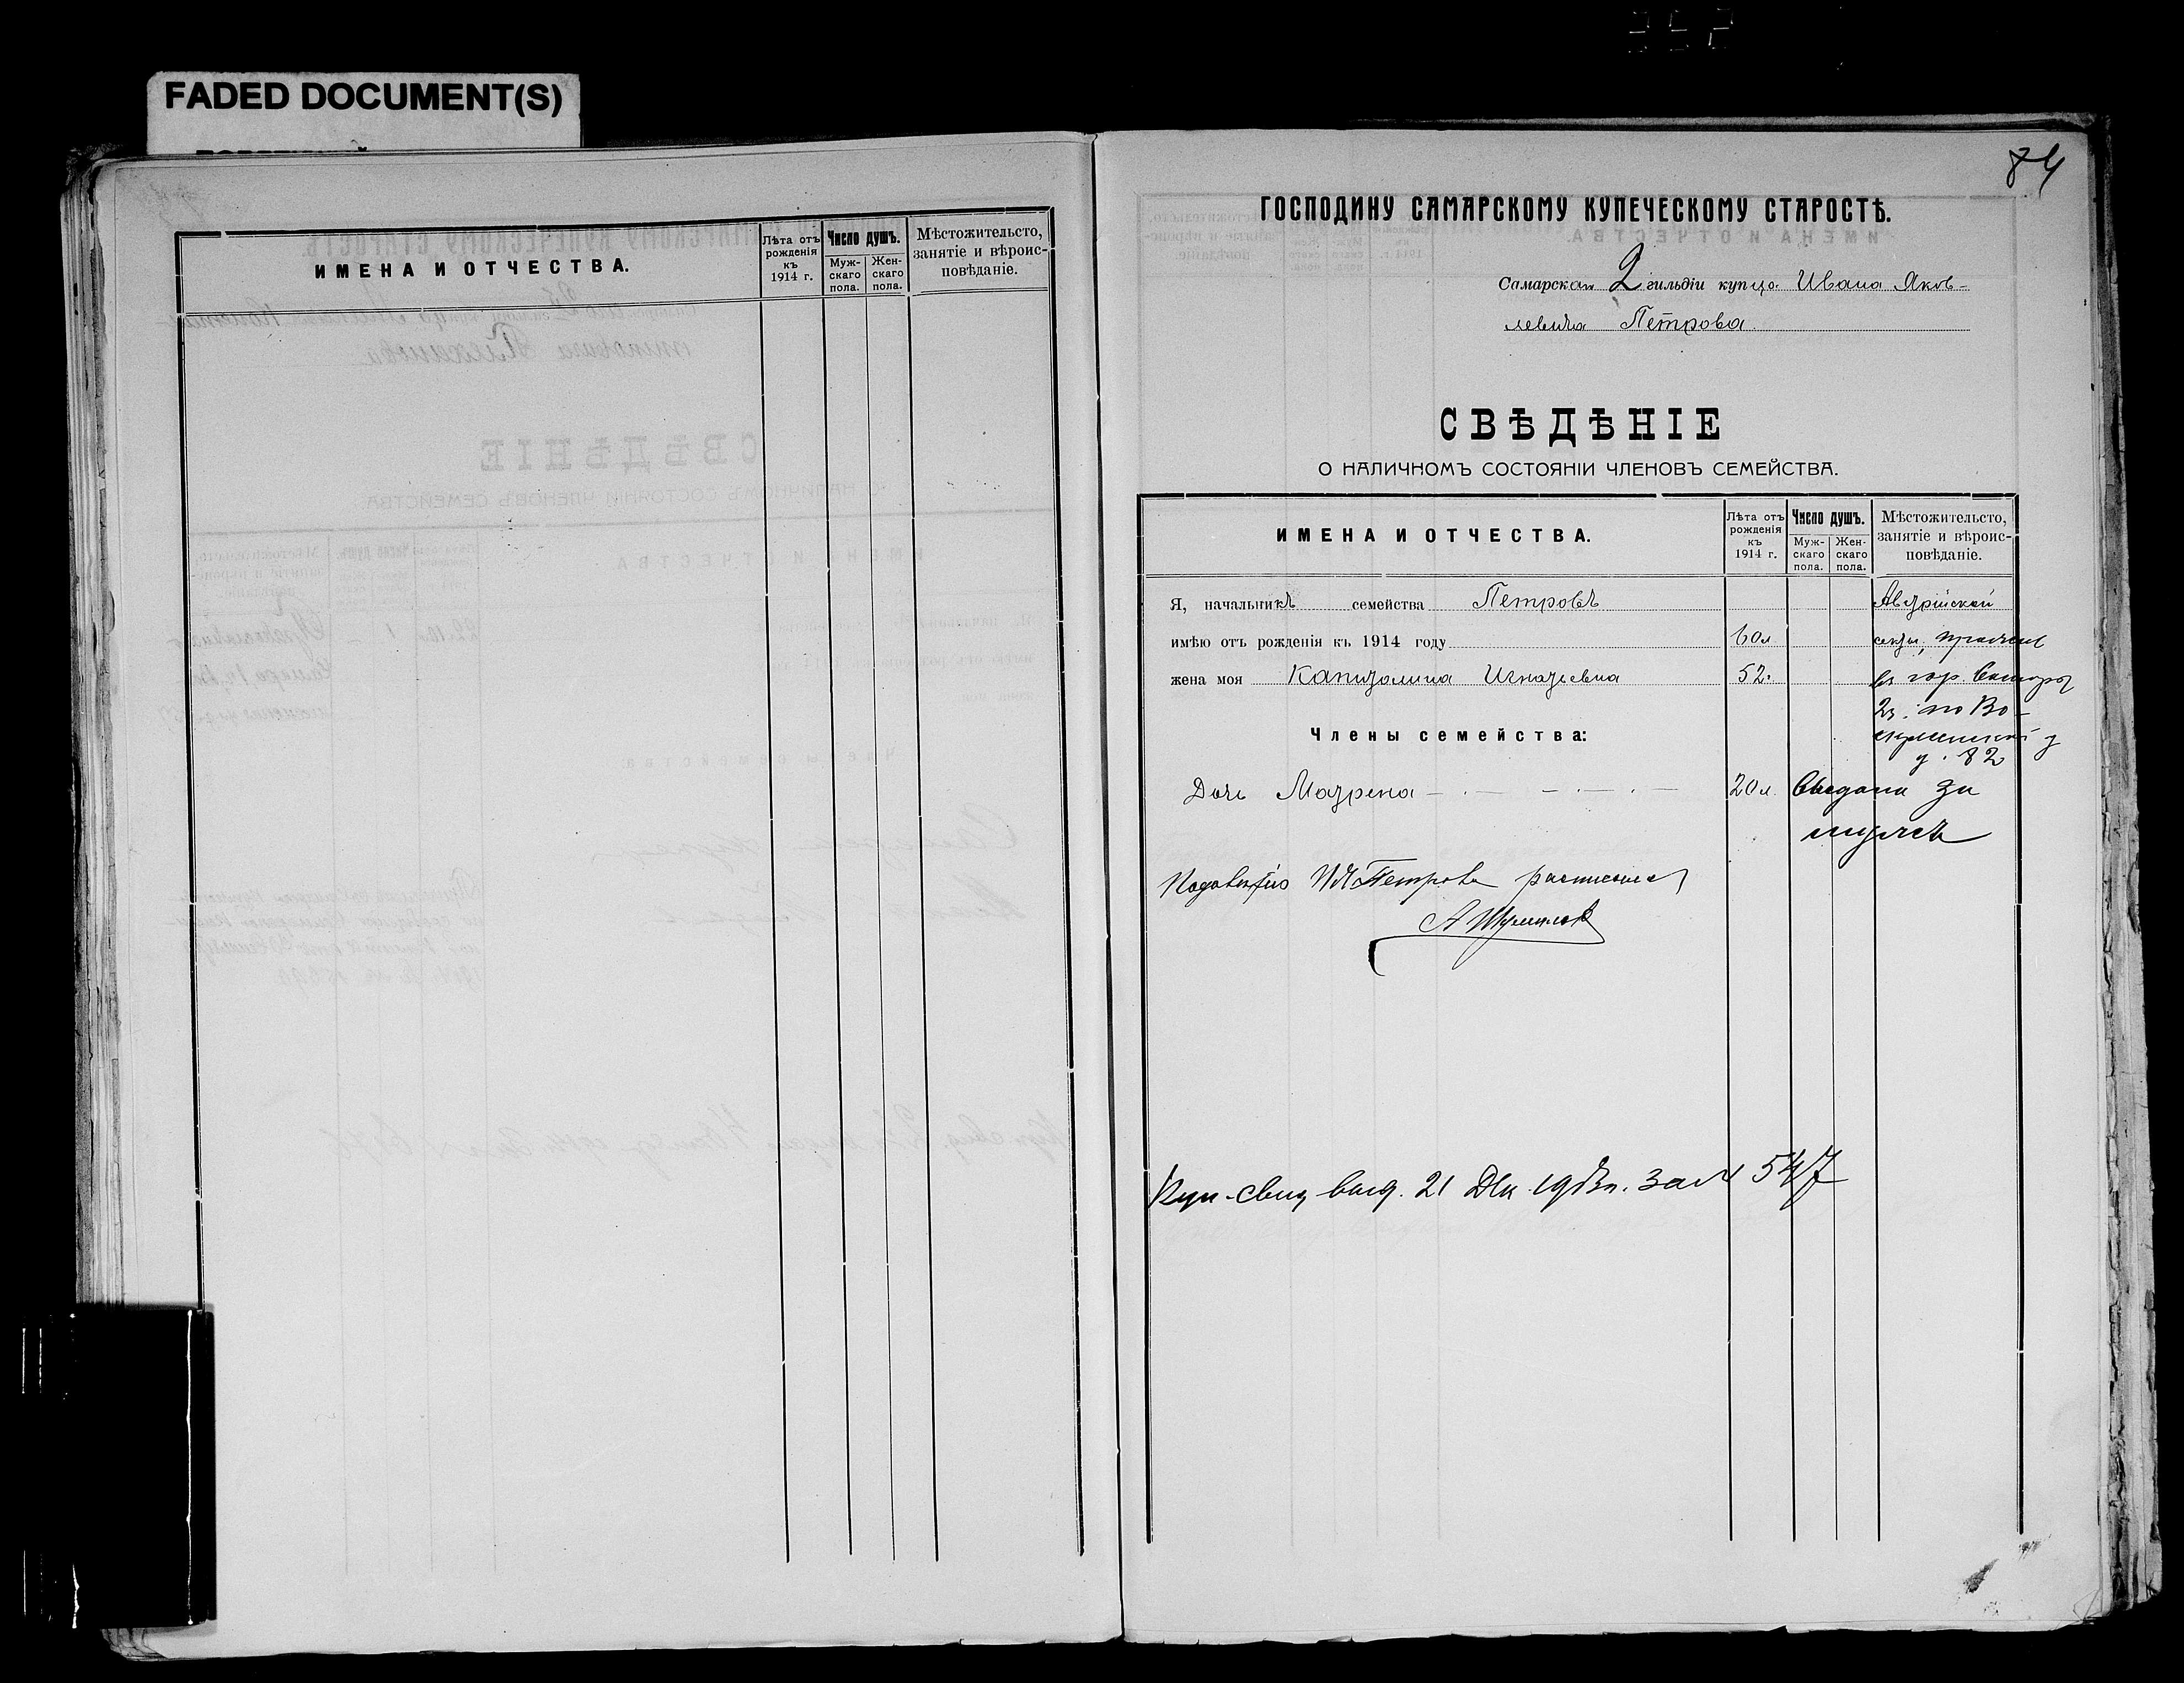 FADED DOCUMENT(S)
ИМЕНА И ОТЧЕСТВА.
Лѣта отъ рожденія къ 1914 г.
Число душъ.
Муж-скаго пола.
Жен-скаго пола.
Мѣстожительсто, занятіе и вѣроис-повѣданіе.
84
ГОСПОДИНУ САМАРСКОМУ КУПЕЧЕСКОМУ СТАРОСТѢ.
Самарскаго 2 гильдіи купца Ивана Яков-
левича Петрова
СВѢДѢНІЕ
О НАЛИЧНОМЪ СОСТОЯНІИ ЧЛЕНОВЪ СЕМЕЙСТВА.
ИМЕНА И ОТЧЕСТВА.
Лѣта отъ рожденія къ 1914 г.
Число душъ.
Муж-скаго пола.
Жен-скаго пола.
Мѣстожительсто, занятіе и вѣроис-повѣданіе.
Я, начальникъ семейства Петровъ Австрійской
имѣю отъ рожденія къ 1914 году 60 л. секты,
жена моя Капитолина Игнатьевна 52. въ гор. Самарѣ
2 ч. по Во-
скресенской у
Члены семейства:
д. 82
Дочь Матрена 20 л. Выдана за
мужъ
И Я Петрова расписался
Куп. свид. выд. 21 Дек. 1913 г. за № 547